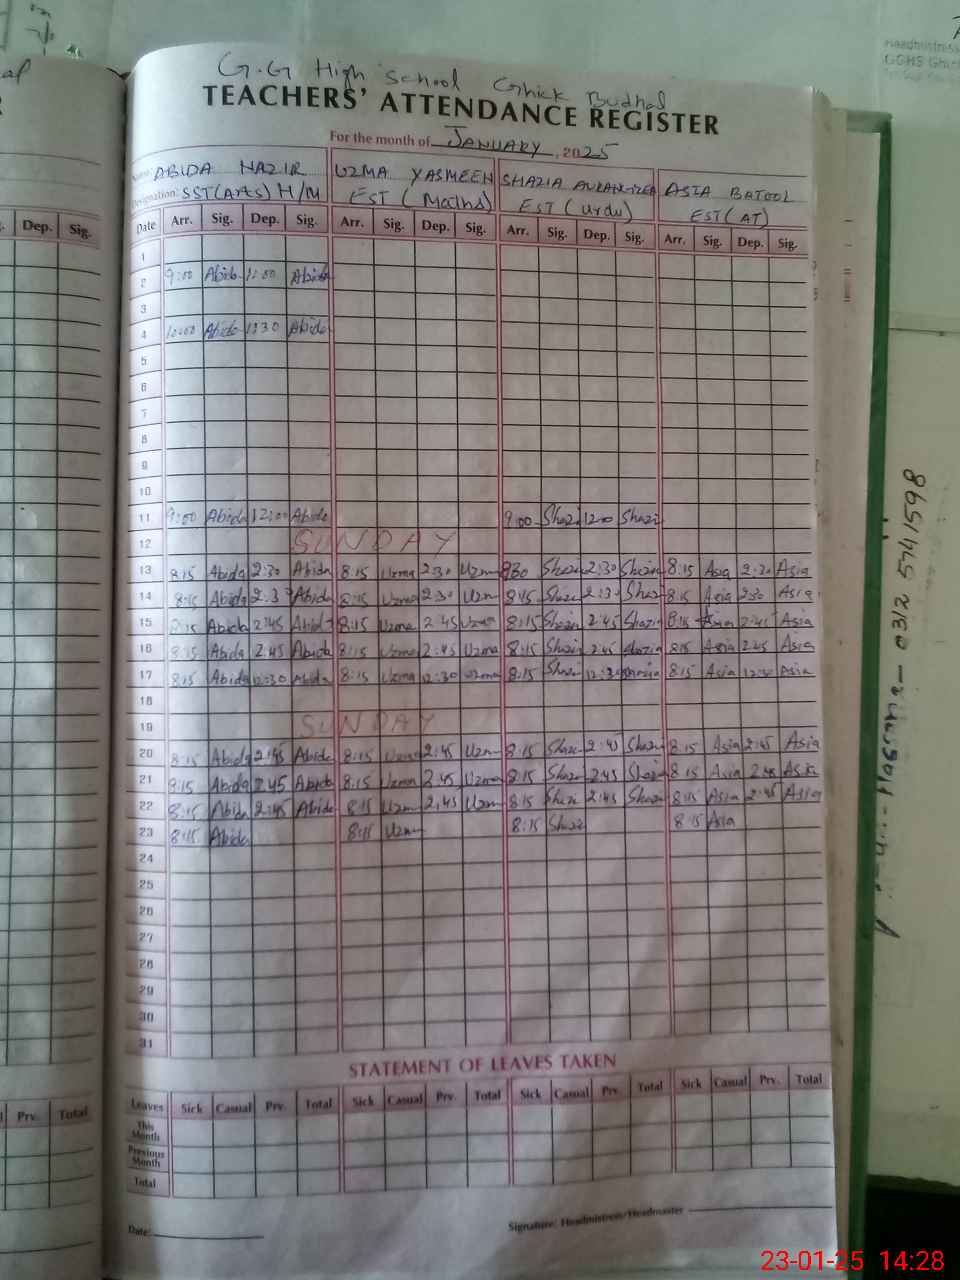 G.G High School Ghick Budhal
TEACHERS' ATTENDANCE REGISTER
For the month of JANUARY, 2025
Name: ABIDA NAZIR UZMA YASMEEN SHAZIA AURANGZEB ASIA BATOOL
Designation: SST(Arts) H/M EST (Maths) EST (Urdu) EST (AT)
Date Arr. Sig. Dep. Sig. Arr. Sig. Dep. Sig. Arr. Sig. Dep. Sig. Arr. Sig. Dep. Sig.
1
2 9:00 Abida 11:00 Abida
3
4 10:00 Abida 1130 Abida
5
6
7
8
9
10
11 9:00 Abida 12:00 Abida 9:00 Shazi 12:00 Shazi
12 SUNDAY
13 8:15 Abida 2:30 Abida 8:15 Uzma 2:30 Uzm 830 Shazi 2:30 Shazia 8:15 Asia 2:30 Asia
14 8:15 Abida 2:30 Abida 8:15 Uzma 2:30 Uzm 8:15 Shazi 2:30 Shaz 8:15 Asia 2:30 Asia
15 8:15 Abida 2:45 Abida 8:15 Uzma 2:45 Uzma 8:15 Shazi 2:45 Shazia 8:15 Asia 2:45 Asia
16 8:15 Abida 2:45 Abida 8:15 Uzma 2:45 Uzma 8:15 Shazi 2:45 Shazia 8:15 Asia 2:45 Asia
17 8:15 Abida 12:30 Abida 8:15 Uzma 12:30 Uzma 8:15 Shazi 12:30 Shazia 8:15 Asia 12:30 Asia
18
19 SUNDAY
20 8:15 Abida 2:45 Abida 8:15 Uzma 2:45 Uzm 8:15 Shazi 2:45 Shazi 8:15 Asia 2:45 Asia
21 8:15 Abida 2:45 Abida 8:15 Uzma 2:45 Uzma 8:15 Shazi 2:45 Shazia 8:15 Asia 2:45 Asia
22 8:15 Abida 2:45 Abida 8:15 Uzm 2:45 Uzm 8:15 Shazi 2:45 Shazi 8:15 Asia 2:45 Asia
23 8:15 Abida 8:15 Uzm 8:15 Shazi 8:15 Asia
24
25
26
27
28
29
30
31
STATEMENT OF LEAVES TAKEN
Leaves Sick Casual Prv. Total Sick Casual Prv. Total Sick Casual Prv. Total Sick Casual Prv. Total
This Month
Previous Month
Total
Date:
Signature: Headmistress/Headmaster
Dep. Sig.
Prv. Total
Headmistress
GGHS Ghick
0312 5741598
23-01-25 14:28